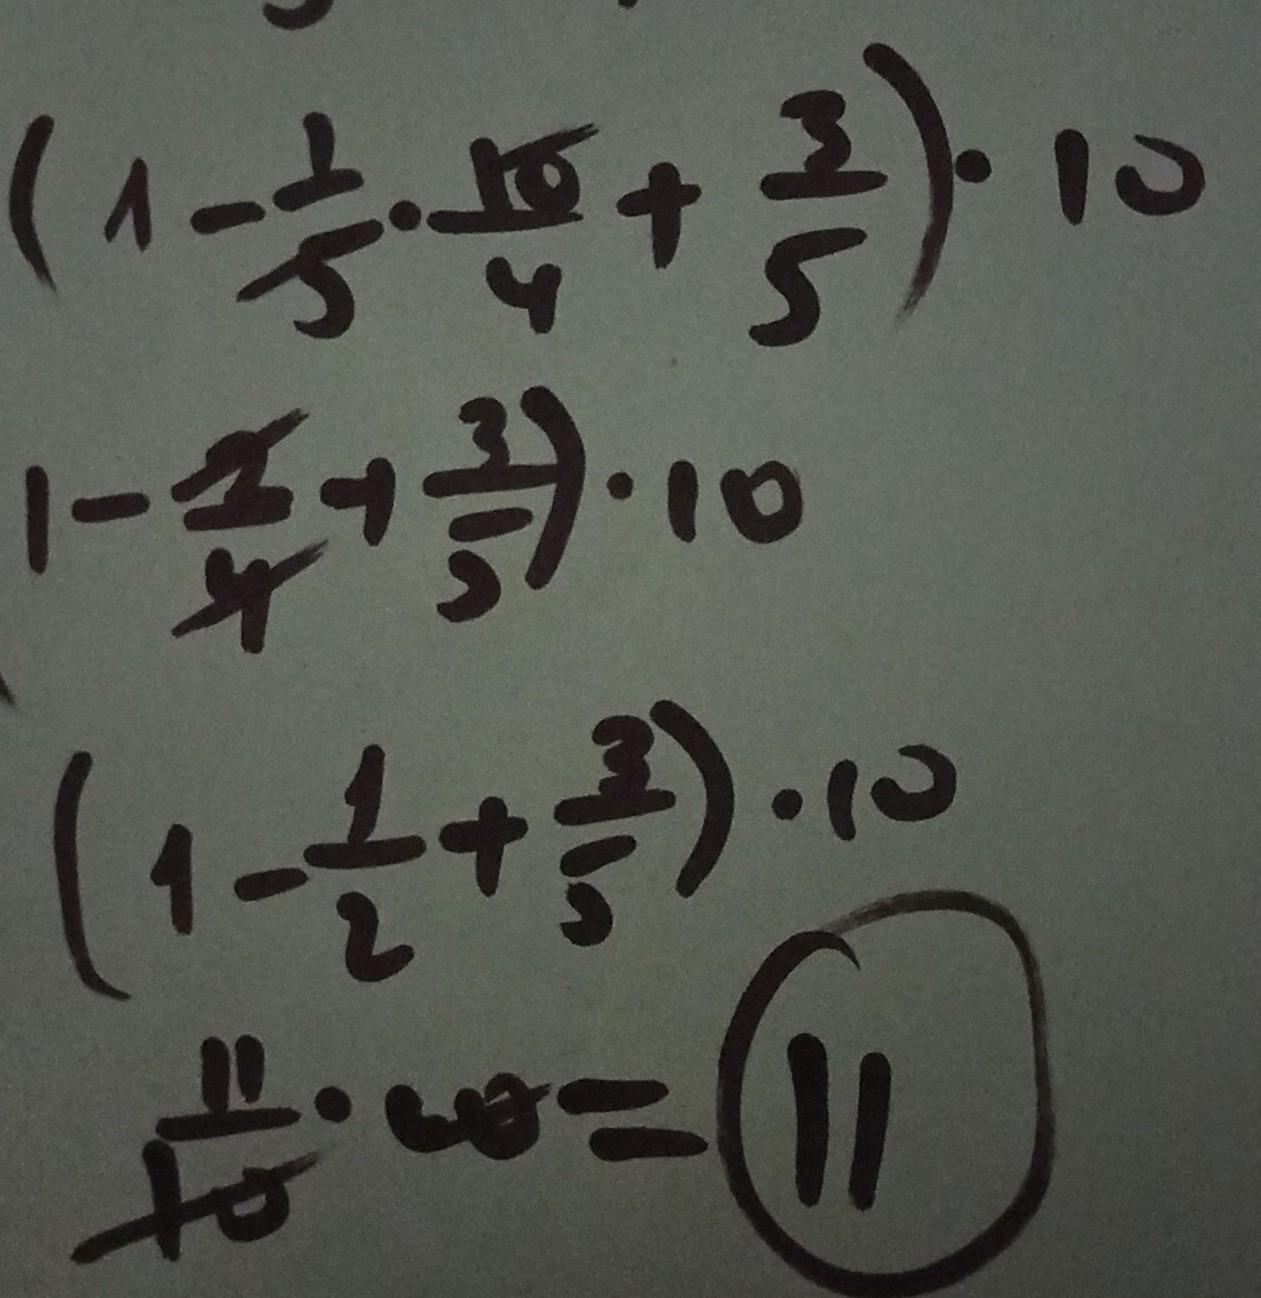 (1 - 1/5 · 10/4 + 3/5) · 10
1 - 2/4 + 3/5) · 10
(1 - 1/2 + 3/5) · 10
11/10 · 10 = 11